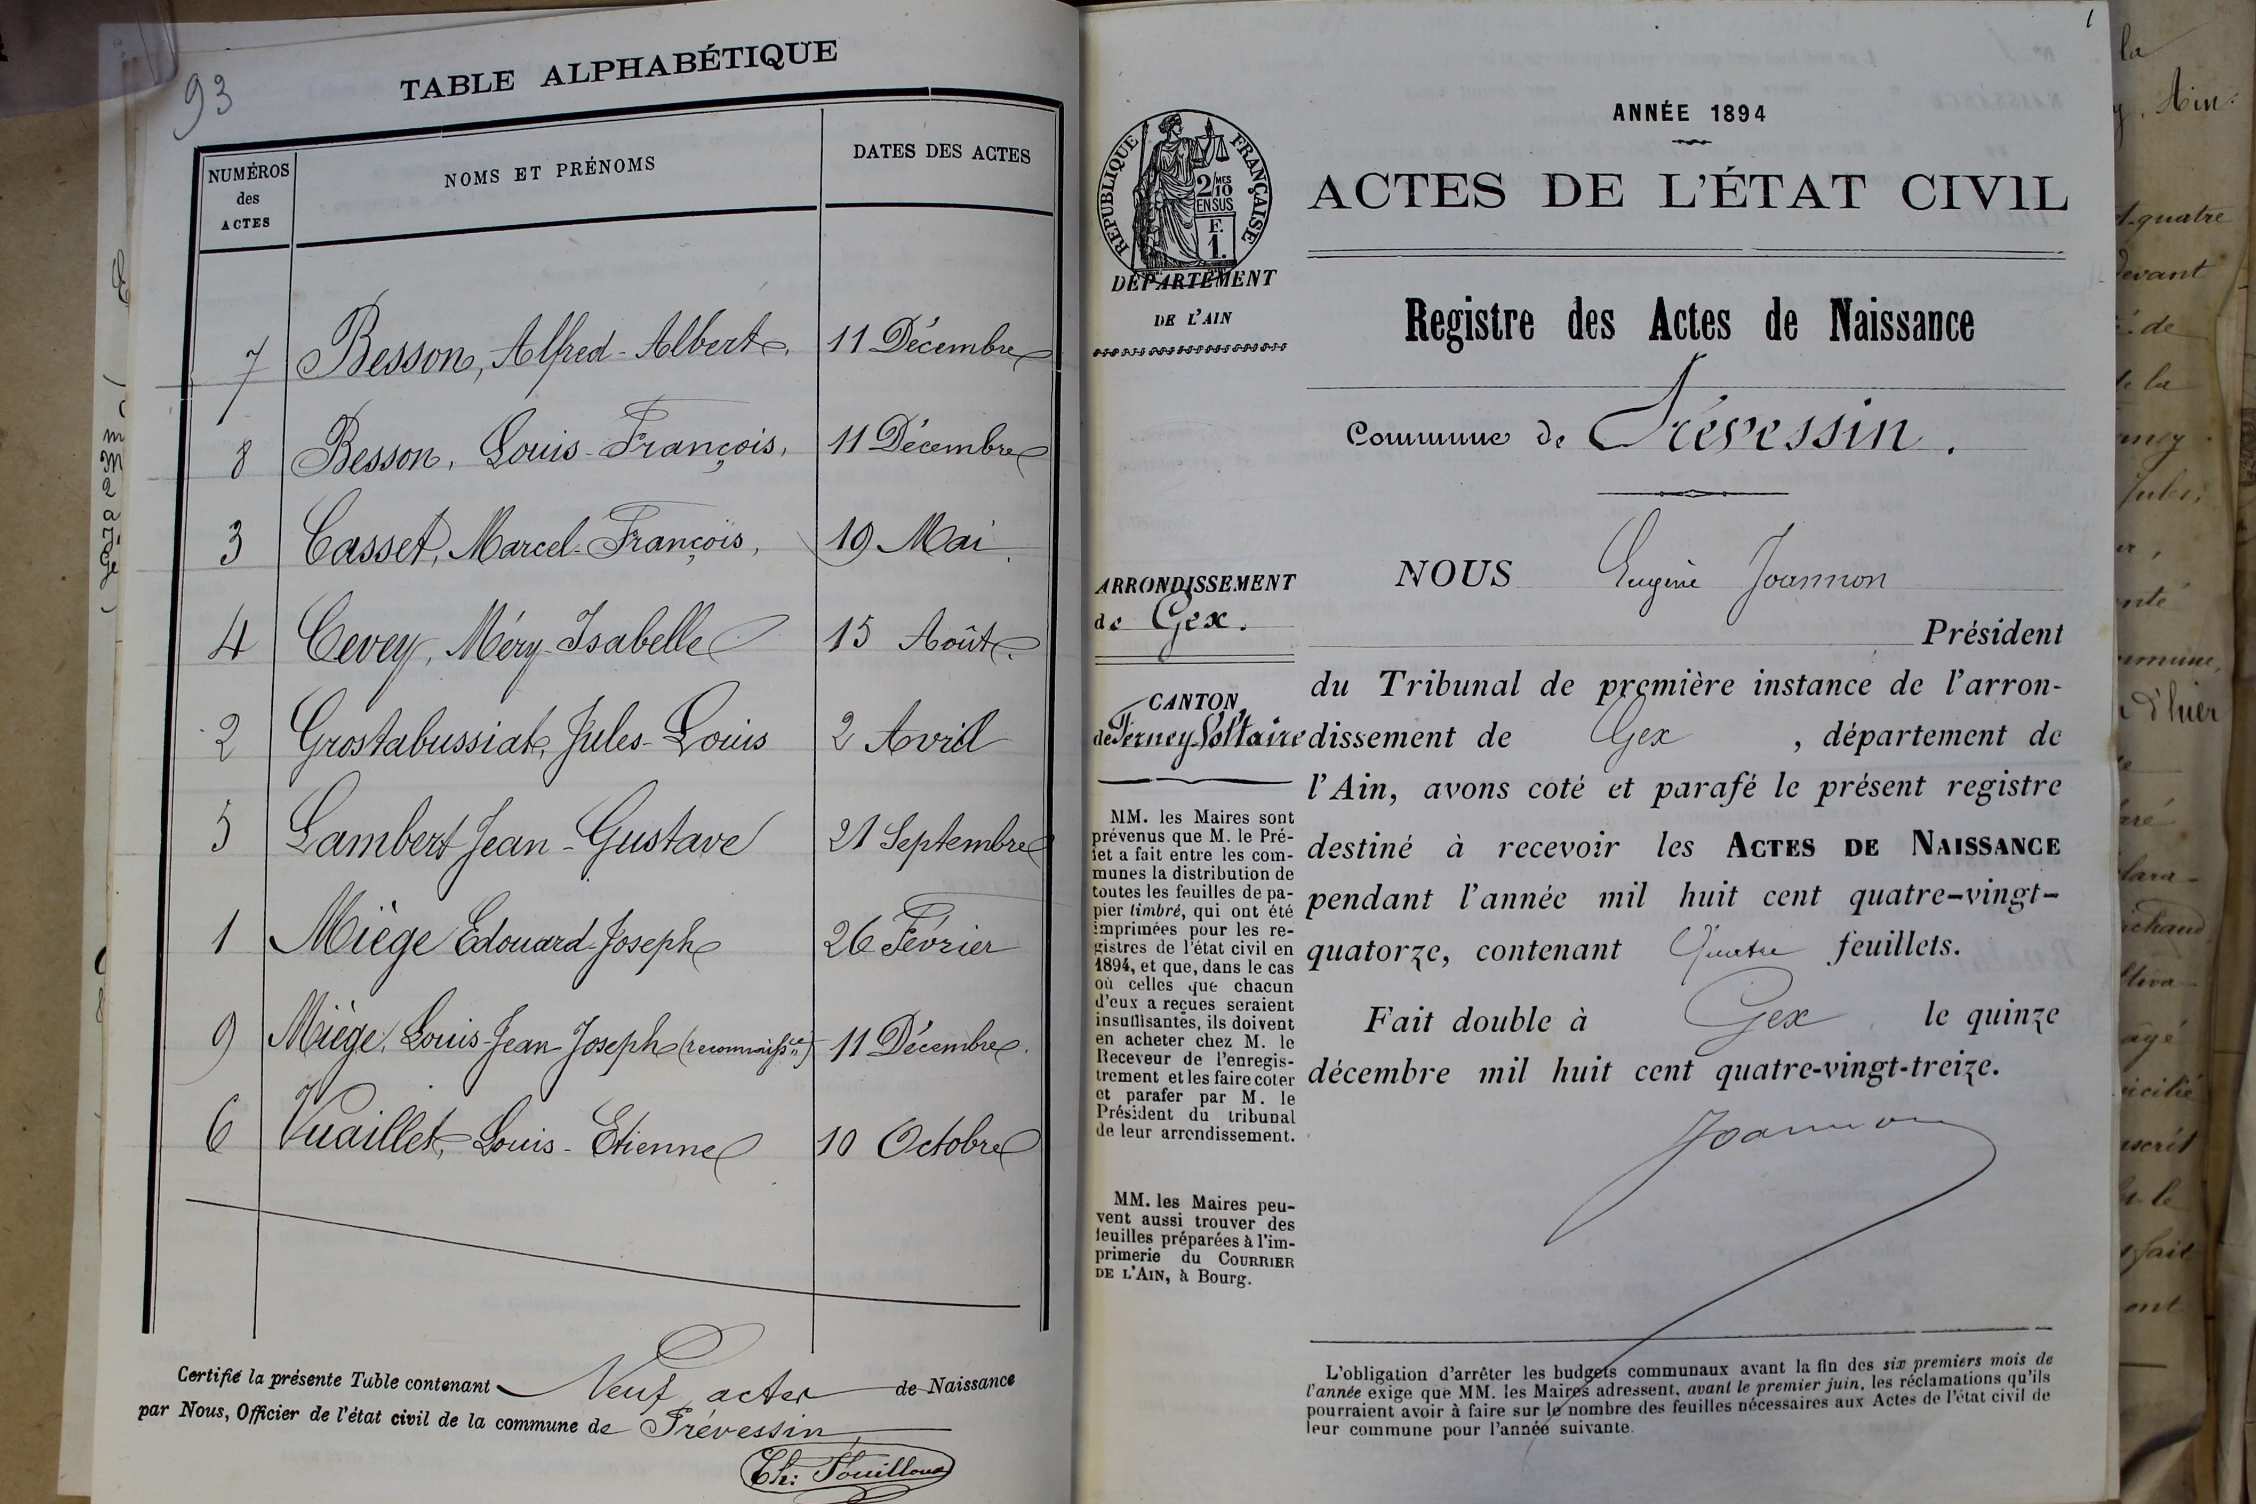 93
TABLE ALPHABÉTIQUE
NUMÉROS
des
ACTES
NOMS ET PRÉNOMS
DATES DES ACTES
7 Besson, Alfred-Albert, 11 Décembre
8 Besson, Louis-François, 11 Décembre
3 Casset, Marcel-François, 19 Mai
4 Cevey, Méry-Isabelle 15 Août
2 Grostabussiat, Jules-Louis 2 Avril
5 Lambert Jean-Gustave 21 Septembre
1 Miège Edouard-Joseph 26 Février
9 Miège, Louis-Jean-Joseph (reconnaissce) 11 Décembre
6 Vuaillet, Louis-Etienne 10 Octobre
Certifié la présente Table contenant Neuf actes de Naissance
par Nous, Officier de l'état civil de la commune de Prévessin
Ch: Fouilloux
1
ANNÉE 1894
RÉPUBLIQUE FRANÇAISE
2/10 MES
EN SUS
F.
1.
ACTES DE L'ÉTAT CIVIL
DÉPARTEMENT
DE L'AIN
Registre des Actes de Naissance
Commune de Prévessin.
ARRONDISSEMENT
de Gex.
CANTON
de Ferney-Voltaire
MM. les Maires sont
prévenus que M. le Pré-
fet a fait entre les com-
munes la distribution de
toutes les feuilles de pa-
pier timbré, qui ont été
imprimées pour les re-
gistres de l'état civil en
1894, et que, dans le cas
où celles que chacun
d'eux a reçues seraient
insuffisantes, ils doivent
en acheter chez M. le
Receveur de l'enregis-
trement et les faire coter
et parafer par M. le
Président du tribunal
de leur arrondissement.
MM. les Maires peu-
vent aussi trouver des
feuilles préparées à l'im-
primerie du COURRIER
DE L'AIN, à Bourg.
NOUS Eugène Joannon
Président
du Tribunal de première instance de l'arron-
dissement de Gex, département de
l'Ain, avons coté et parafé le présent registre
destiné à recevoir les ACTES DE NAISSANCE
pendant l'année mil huit cent quatre-vingt-
quatorze, contenant Quatre feuillets.
Fait double à Gex le quinze
décembre mil huit cent quatre-vingt-treize.
Joannon
L'obligation d'arrêter les budgets communaux avant la fin des six premiers mois de
l'année exige que MM. les Maires adressent, avant le premier juin, les réclamations qu'ils
pourraient avoir à faire sur le nombre des feuilles nécessaires aux Actes de l'état civil de
leur commune pour l'année suivante.
la
Ain.
quatre
devant
de
la
d'hier